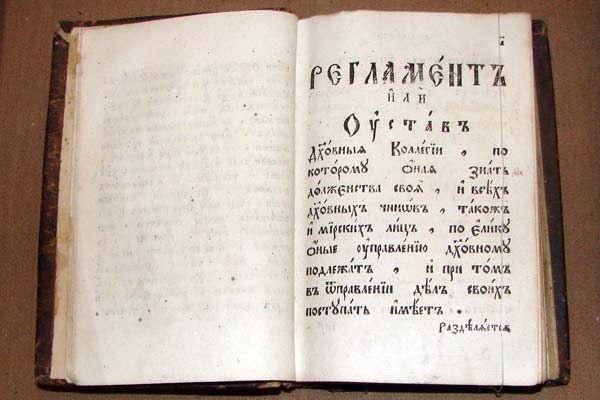 РЕГЛАМЕ́НТЪ
И҆ЛЍ
Оу҆ста́въ
Дх҃о́вныѧ Колле́гїи , по
кото́рому ѻ҆́наѧ зна́ть
до́лженства своѧ̀ , и҆ всѣ́хъ
дх҃о́вныхъ чинѡ́въ , тако́жъ
и҆ мїрски́хъ ли́цъ , по є҆ли́кꙋ
ѻ҆́ные оу҆правле́нїю дх҃о́вному
подлежа́тъ , и҆ при то́мъ
въ ѿправле́нїи дѣ́лъ свои́хъ
поступа́ть и҆мѣ́етъ .
Раздѣлѧ́етсѧ